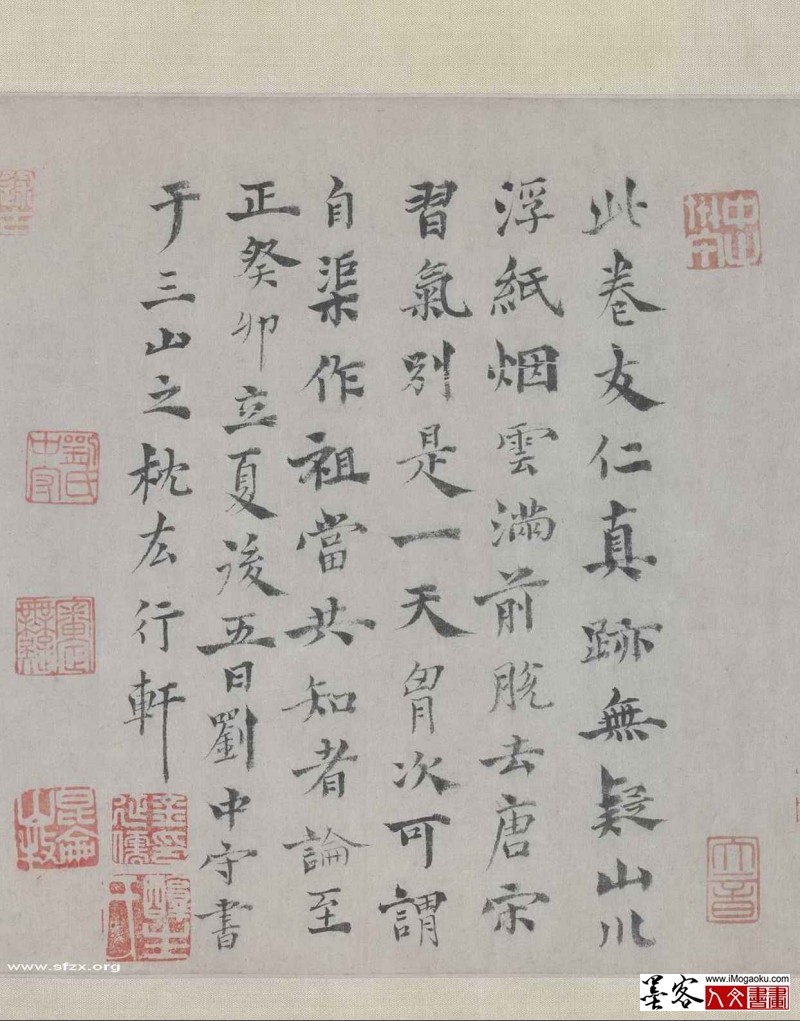 此卷友仁真跡無疑山川
浮紙烟雲滿前脫去唐宋
習氣別是一天胷次可謂
自渠作祖當共知者論至
正癸卯立夏後五日劉中守書
于三山之枕太行軒
劉氏
中守
www.sfzx.org
www.iMogaoku.com
墨客
人文書畫